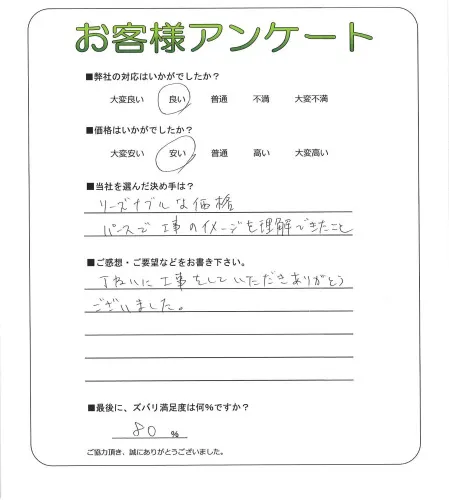 お客様アンケート
■弊社の対応はいかがでしたか？
大変良い　良い　普通　不満　大変不満
■価格はいかがでしたか？
大変安い　安い　普通　高い　大変高い
■当社を選んだ決め手は？
リーズナブルな価格
パースで工事のイメージを理解できたこと
■ご感想・ご要望などをお書き下さい。
丁ねいに工事をしていただきありがとう
ございました。
■最後に、ズバリ満足度は何％ですか？
80 ％
ご協力頂き、誠にありがとうございました。